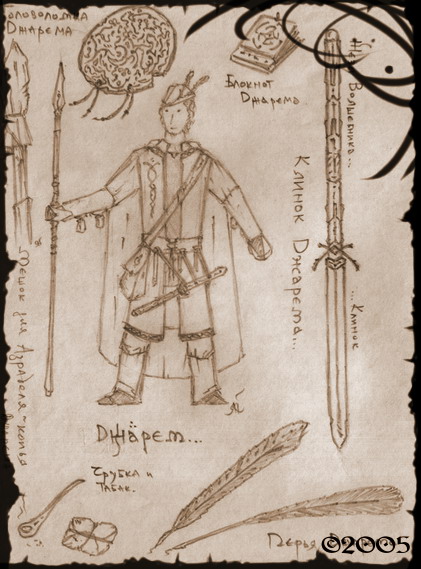 Головоломка
Джарема
Блокнот
Джарема
Волшебника...
Клинок Джарема...
...Клинок
Мешок для Азраделя-копья
Джарем...
Трубка и
Табак.
Перья
©2005